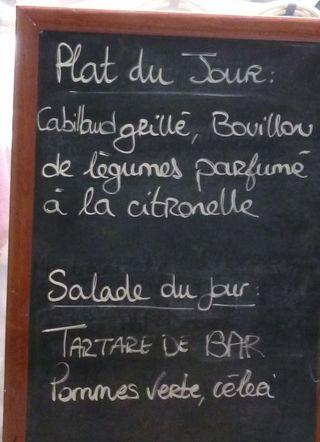 Plat du Jour:
Cabillaud grillé, Bouillon
de légumes parfumé
à la citronelle
Salade du jour:
TARTARE DE BAR
Pommes verte, céleri